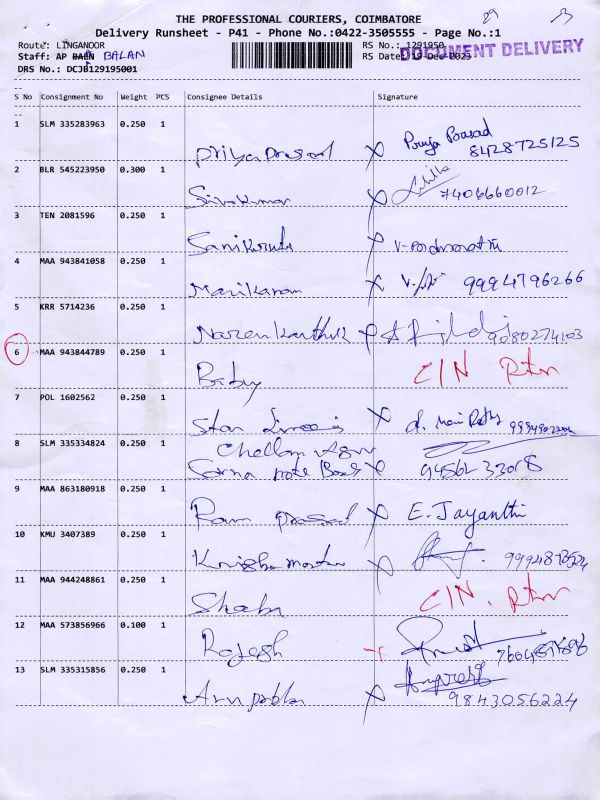 THE PROFESSIONAL COURIERS, COIMBATORE
29 13
Delivery Runsheet - P41 - Phone No.:0422-3505555 - Page No.:1
Route: LINGANOOR
RS No.: 1291950
DOCUMENT DELIVERY
Staff: AP BALAN
RS Date: 19-Dec-2023
DRS No.: DCJB129195001
S No Consignment No Weight PCS Consignee Details Signature
1 SLM 335283963 0.250 1
Priya Prasad X Priya Prasad
8428725125
2 BLR 545223950 0.300 1
Sivakumar X 7406660012
3 TEN 2081596 0.250 1
X
4 MAA 943841058 0.250 1
X 9994796266
5 KRR 5714236 0.250 1
9080274103
6 MAA 943844789 0.250 1
Baby C/N Rtn
7 POL 1602562 0.250 1
Star X
8 SLM 335334824 0.250 1
Note Book X 94562 33018
9 MAA 863180918 0.250 1
Ram Prasad X E. Jayanthi
10 KMU 3407389 0.250 1
X
11 MAA 944248861 0.250 1
C/N. Rtn
12 MAA 573856966 0.100 1
Rajesh
13 SLM 335315856 0.250 1
X 9843056224